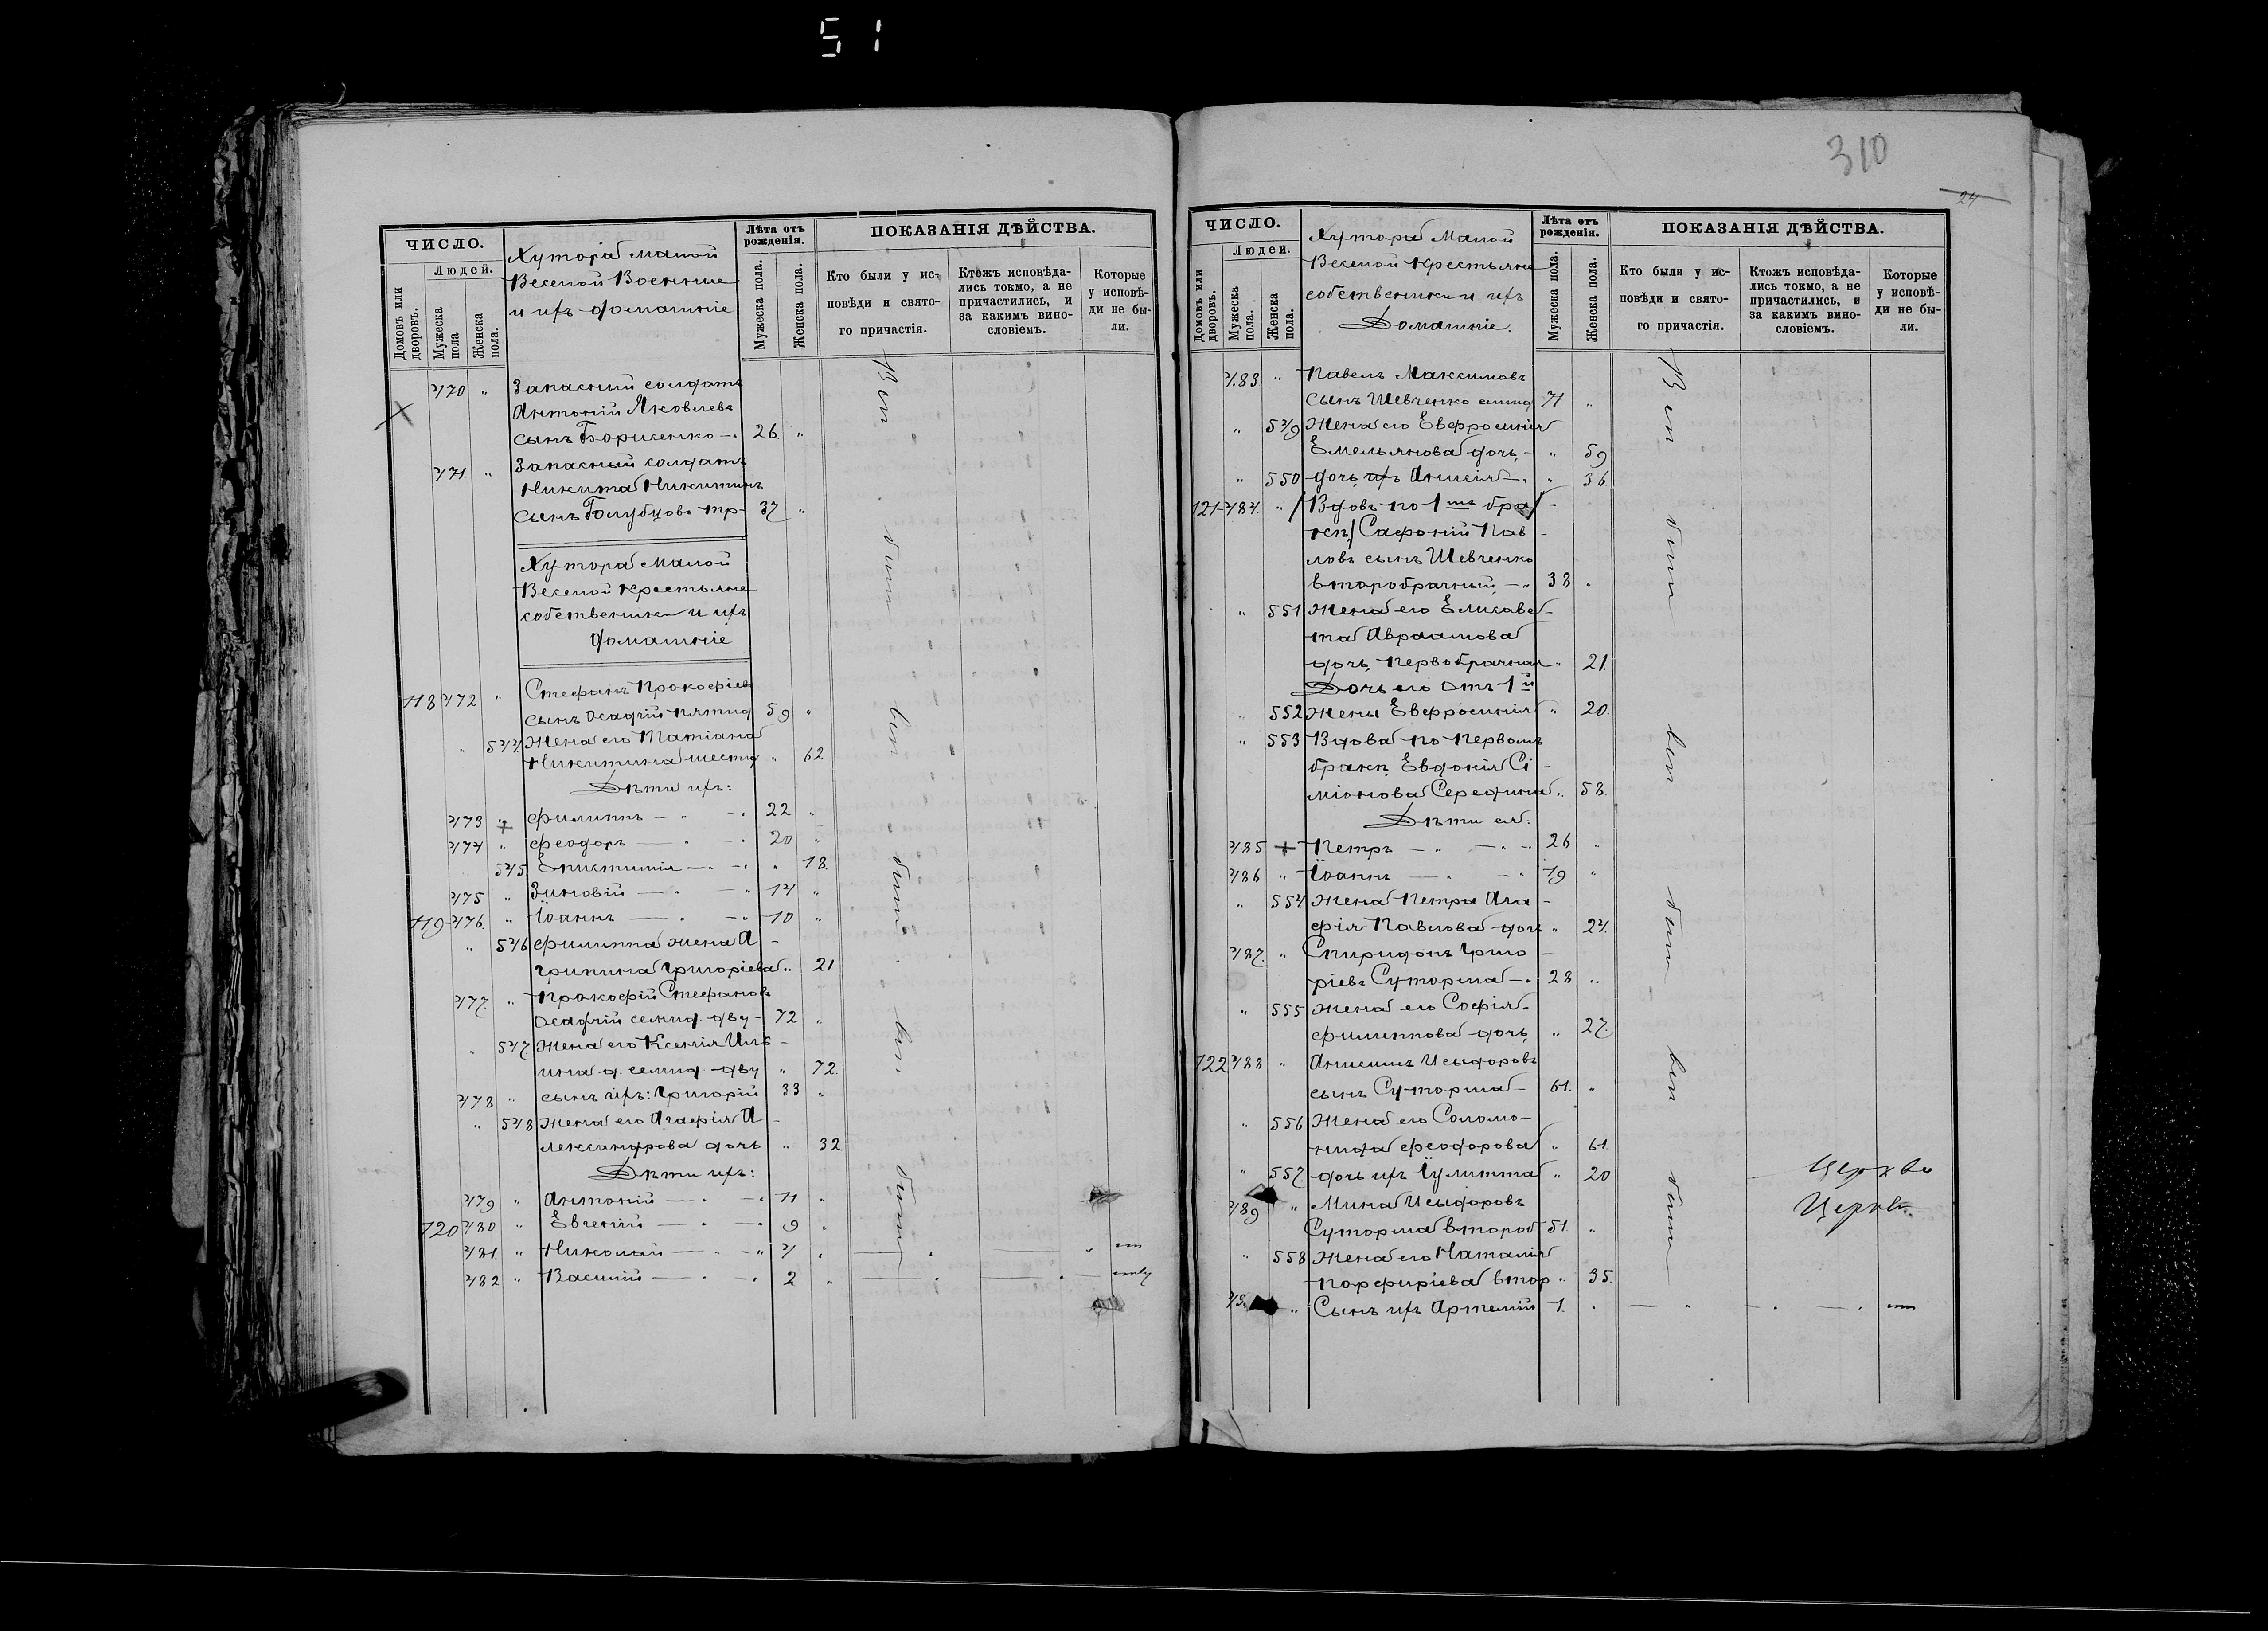 51
ЧИСЛО.
Людей.
Домовъ или дворовъ.
Мужеска пола
Женска пола.
Хутора Малой
Веселой Военные
и ихъ домашніе
Лѣта отъ рожденія.
Мужеска пола.
Женска пола.
ПОКАЗАНІЯ ДѢЙСТВА.
Кто были у ис-
повѣди и свято-
го причастія.
Ктожъ исповѣда-
лись токмо, а не
причастились, и
за какимъ вино-
словіемъ.
Которые
у исповѣ-
ди не бы-
ли.
470 " Запасный солдатъ
Антоній Яковлевъ
сынъ Борисенко 26 "
471 " Запасный солдатъ
Никита Никитинъ
сынъ Голубцовъ 37 "
Хутора Малой
Веселой крестьяне
собственики и ихъ
домашніе
118 472 " Стефанъ Прокофіевъ
сынъ 59 "
" 544 Жена его Татіана
Никитина " 62
Дѣти ихъ:
473 + Филиппъ 22 "
474 " Феодоръ 20 "
545 Епистимія " 18
475 " Зиновій 14 "
119 476 " Іоаннъ 10 "
" 546 Филиппа жена А-
грипина Григоріева " 21
477 " Прокофій Стефановъ
72 "
" 547 Жена его Ксенія
" 72
478 " сынъ ихъ: Григорій 33 "
" 548 Жена его Агафія А-
лександрова дочь " 32
Дѣти ихъ:
479 " Антоній 11 "
120 480 " Евгеній 9 "
481 " Николай 4 "
482 " Василій 2 "
Всѣ были всѣ были всѣ были
310
24
ЧИСЛО.
Людей.
Домовъ или дворовъ.
Мужеска пола.
Женска пола.
Хутора Малой
Веселой крестьяне
собственики и ихъ
Домашніе.
Лѣта отъ рожденія.
Мужеска пола.
Женска пола.
ПОКАЗАНІЯ ДѢЙСТВА.
Кто были у ис-
повѣди и свято-
го причастія.
Ктожъ исповѣда-
лись токмо, а не
причастились, и
за какимъ вино-
словіемъ.
Которые
у исповѣ-
ди не бы-
ли.
483 " Павелъ Максимовъ
сынъ Шевченко 71 "
" 549 Жена его Евфросинія
Емельянова дочь " 59
" 550 дочь ихъ Анисія " 36
121 484 " Вдовъ по 1мъ бра-
кѣ Сафоній Пав-
ловъ сынъ Шевченко
второбрачный 38 "
" 551 Жена его Елисаве-
та Авраамова
дочь, первобрачная " 21
Дочь его отъ 1й
" 552 Жены Евфросинія " 20
" 553 Вдова по первомъ
бракѣ Евдокія Сі-
міонова Середина " 58
Дѣти ея:
485 + Петръ 26 "
486 " Іоаннъ 19 "
" 554 Жена Петра Ага-
фія Павлова дочь " 24
487 " Спиридонъ Григо-
ріевъ Суторма 28 "
" 555 Жена его Софія
Филиппова дочь " 27
122 488 " Анисимъ Исыдоровъ
сынъ Суторма 61 "
" 556 Жена его Соломо-
нида Феодорова " 61
" 557 дочь ихъ Іулитта " 20
489 " Мина Исыдоровъ
Суторма второб 51 "
" 558 Жена его Наталія
Порфиріева втор " 35
" Сынъ ихъ Артемій 1 "
Всѣ были всѣ были всѣ были